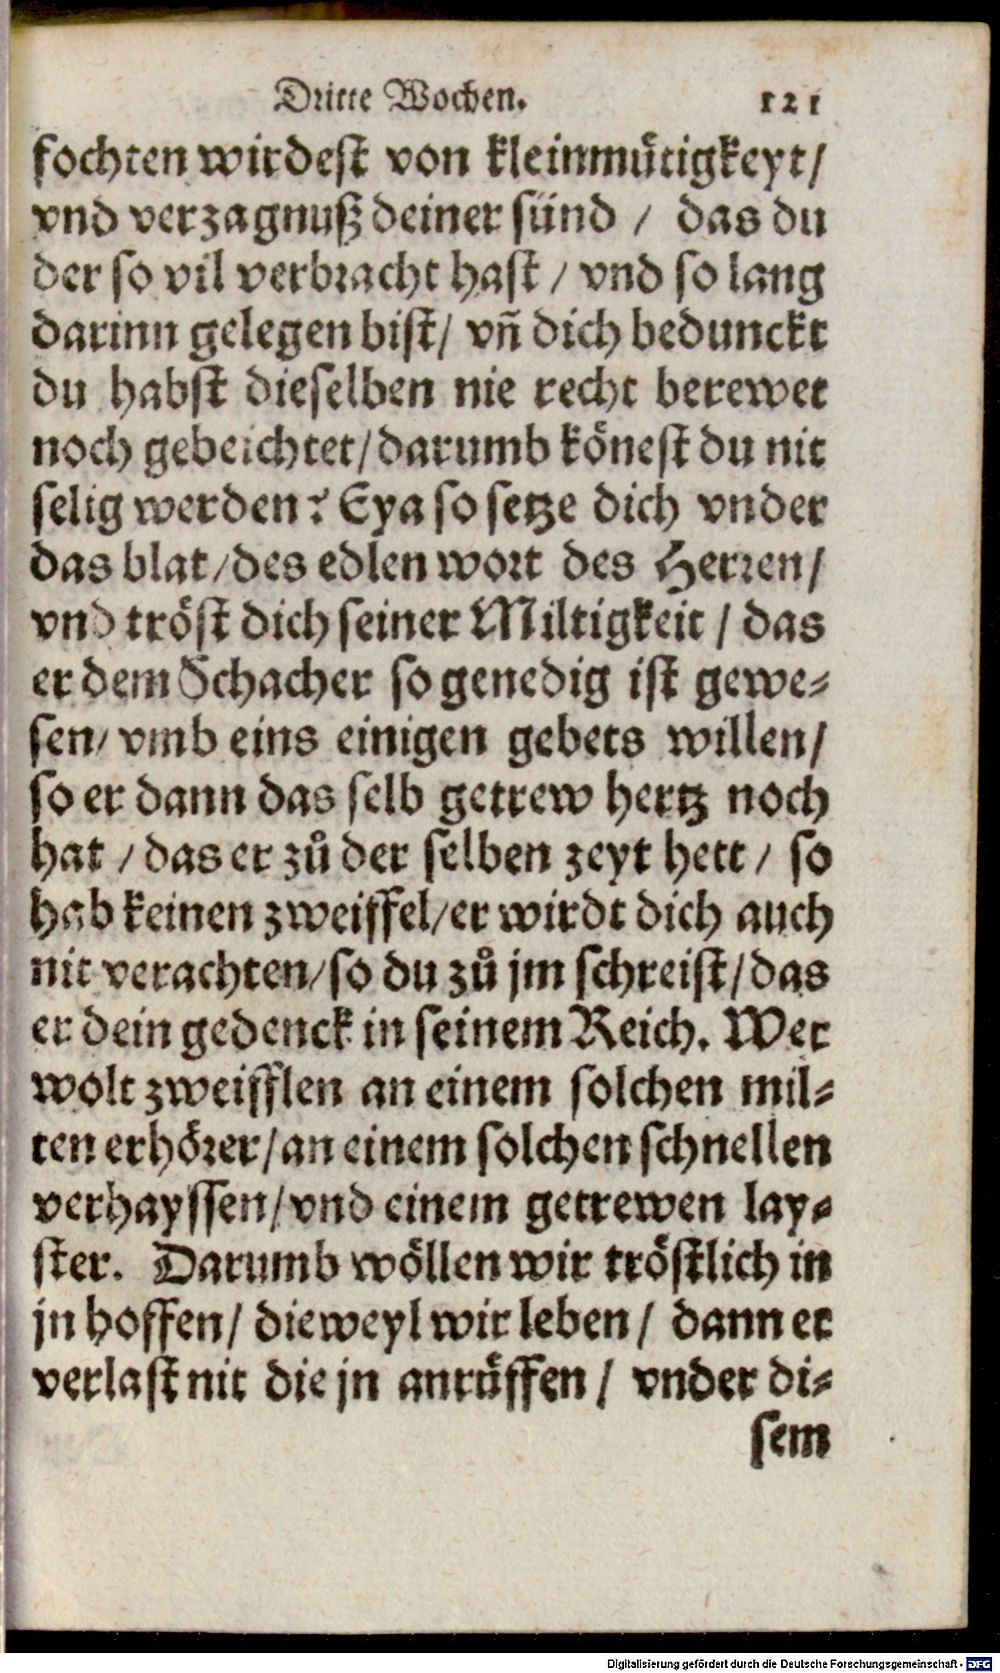 Dritte Wochen. 121
fochten wirdest von kleinmuͤtigkeyt/
vnd verzagnuß deiner sünd / das du
der so vil verbracht hast / vnd so lang
darinn gelegen bist/ vñ dich bedunckt
du habst dieselben nie recht berewet
noch gebeichtet/darumb könest du nit
selig werden? Eya so setze dich vnder
das blat/des edlen wort des Herren/
vnd tröst dich seiner Miltigkeit / das
er dem Schacher so genedig ist gewe-
sen/ vmb eins einigen gebets willen/
so er dann das selb getrew hertz noch
hat / das er zů der selben zeyt hett / so
hab keinen zweiffel/er wirdt dich auch
nit verachten/so du zů jm schreist/das
er dein gedenck in seinem Reich. Wer
wolt zweifflen an einem solchen mil-
ten erhörer/an einem solchen schnellen
verhayssen/vnd einem getrewen lay-
ster. Darumb wöllen wir tröstlich in
jn hoffen/ dieweyl wir leben/ dann er
verlast nit die jn anruͤffen / vnder di-
sem
Digitalisierung gefördert durch die Deutsche Forschungsgemeinschaft - DFG